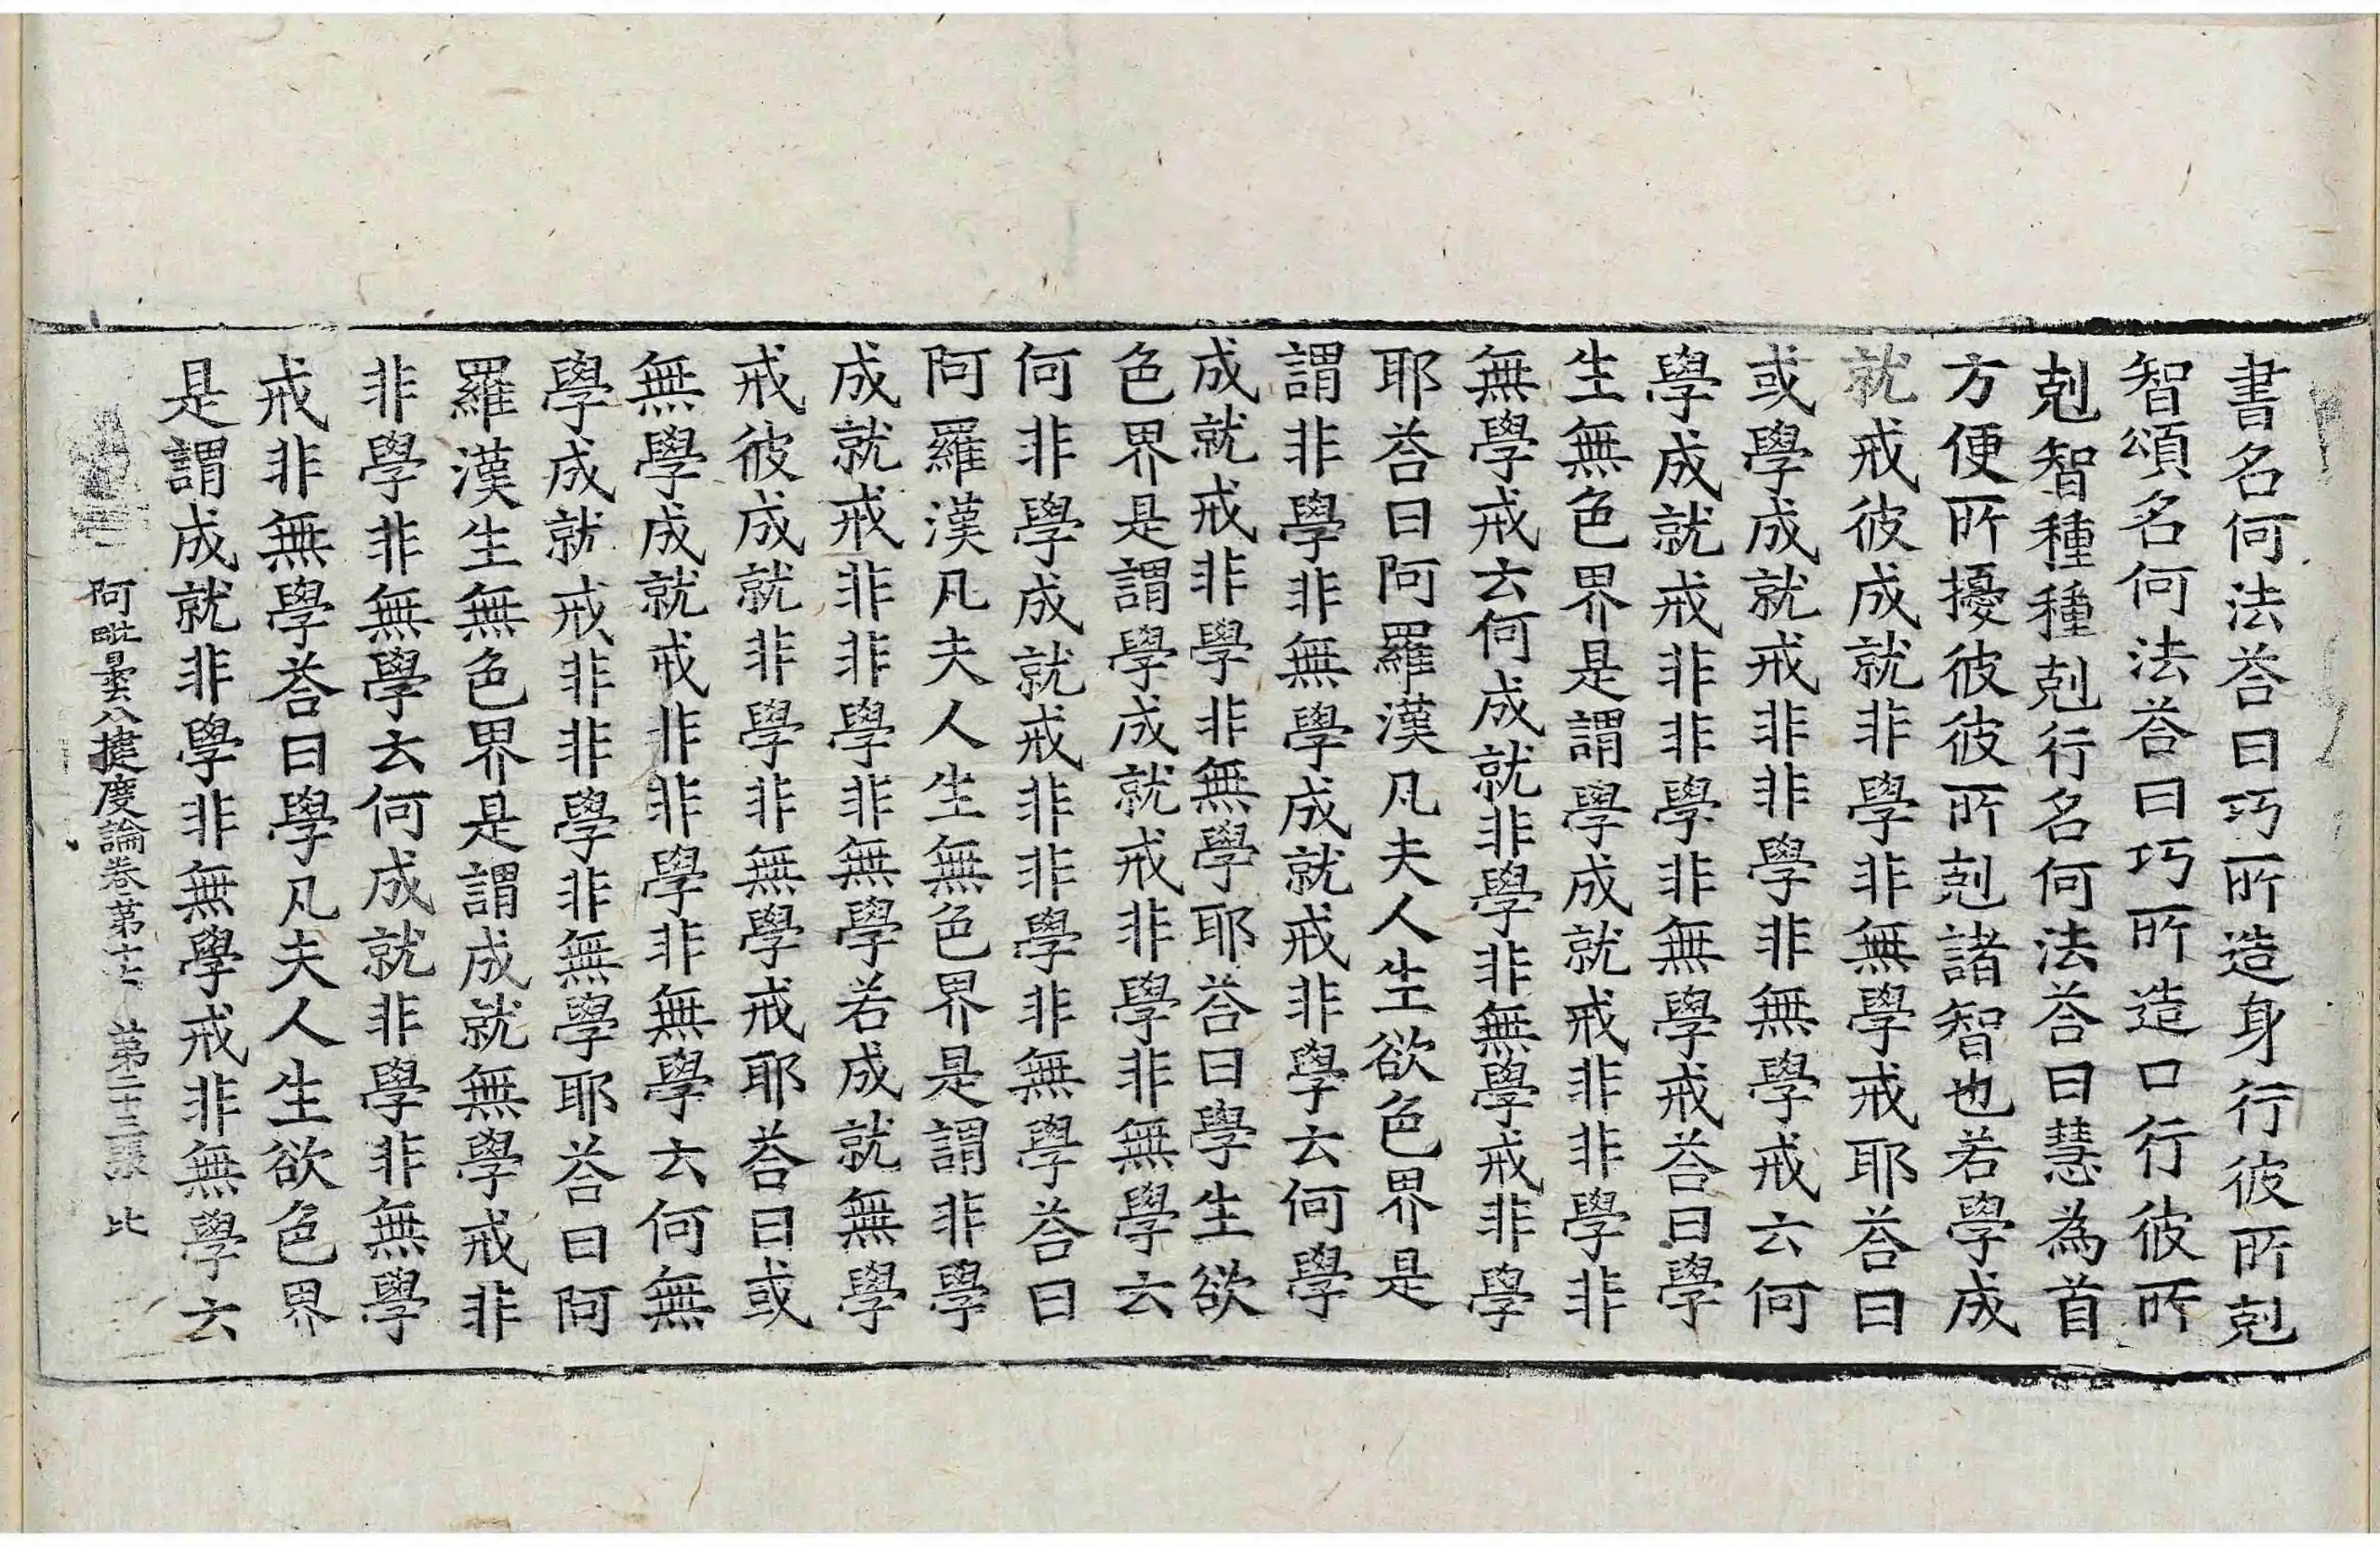 書名何法荅曰巧所造身行彼所剋
智頌名何法荅曰巧所造口行彼所
剋智種種剋行名何法荅曰慧為首
方便所擾彼彼所剋諸智也若學成
就戒彼成就非學非無學戒耶荅曰
或學成就戒非非學非無學戒云何
學成就戒非非學非無學戒荅曰學
生無色界是謂學成就戒非非學非
無學戒云何成就非學非無學戒非學
耶荅曰阿羅漢凡夫人生欲色界是
謂非學非無學成就戒非學云何學
成就戒非學非無學耶荅曰學生欲
色界是謂學成就戒非學非無學云
何非學成就戒非非學非無學荅曰
阿羅漢凡夫人生無色界是謂非學
成就戒非非學非無學若成就無學
戒彼成就非學非無學戒耶荅曰或
無學成就戒非非學非無學云何無
學成就戒非非學非無學耶荅曰阿
羅漢生無色界是謂成就無學戒非
非學非無學云何成就非學非無學
戒非無學荅曰學凡夫人生欲色界
是謂成就非學非無學戒非無學云
阿毗曇八揵度論卷第十七 第二十三張 比